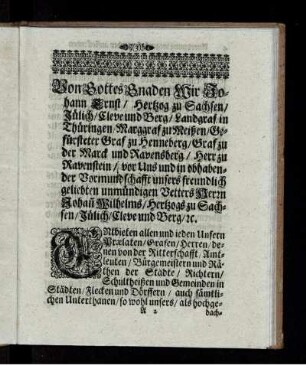 Von Gottes Gnaden Wir Jo-
hann Ernst / Hertzog zu Sachsen /
Jülich / Cleve und Berg / Landgraf in
Thüringen Marggraf zu Meißen / Ge-
fürsteter Graf zu Henneberg / Graf zu
der Marck und Ravensberg / Herr zu
Ravenstein / vor Uns und in obhaben-
der Vormundschafft unsers freundlich
geliebten unmündigen Vetters Herrn
Johañ Wilhelms / Hertzogs zu Sach-
sen / Jülich / Cleve und Berg / ꝛc.
ENtbieten allen und ieden Unsern
Prælaten / Grafen / Herren / de-
nen von der Ritterschafft / Amt-
leuten / Bürgemeistern und Rä-
then der Städte / Richtern /
Schultheißen und Gemeinden in
Städten / Flecken und Dörffern / auch sämtli-
chen Unterthanen / so wohl unsers / als hochge-
A 2 bach-